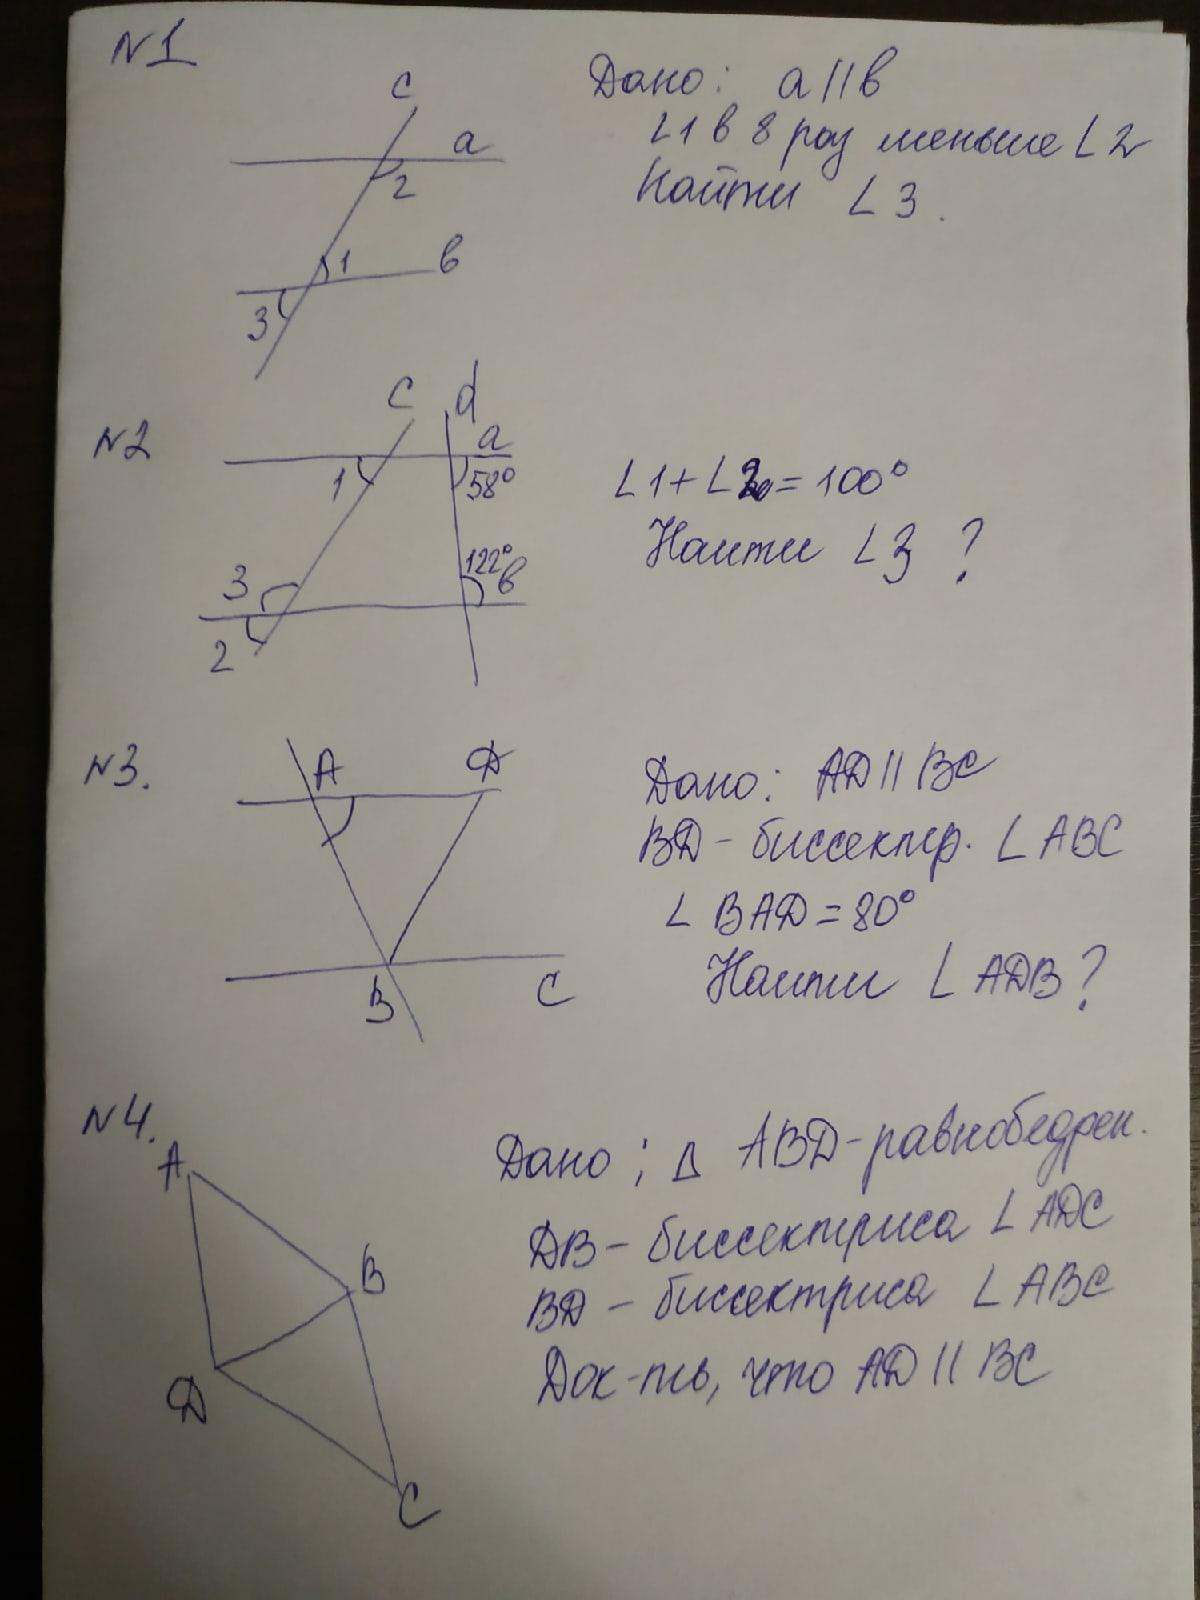 N1
c
a
2
1
в
3
Дано: a||в
∠1 в 8 раз меньше ∠2
Найти ∠3.
N2
c
d
a
1
58°
3
122°
в
2
∠1+∠2=100°
Найти ∠3?
N3.
A
D
B
C
Дано: AD||BC
BD-биссектр. ∠ABC
∠BAD=80°
Найти ∠ADB?
N4.
A
B
D
C
Дано; Δ ABD-равнобедрен.
DB-биссектриса ∠ADC
BD-биссектриса ∠ABC
Док-ть, что AD||BC